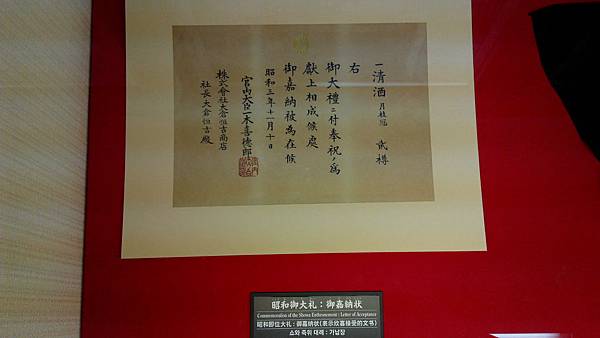 一清酒 月桂冠 貳樽
右
御大禮ニ付奉祝ノ為
獻上相成候處
御嘉納被為在候
昭和三年十一月十日
宮内大臣一木喜德郎
株式會社大倉恒吉商店
社長大倉恒吉殿
昭和御大礼：御嘉納状
Commemoration of the Showa Enthronement : Letter of Acceptance
昭和即位大礼：御嘉纳状(表示欣喜接受的文书)
쇼와 즉위 대례 : 가납장